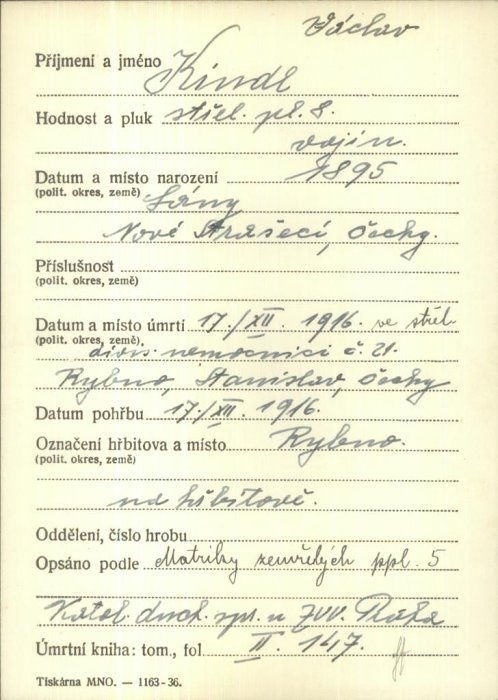 Václav
Příjmení a jméno Kindl
Hodnost a pluk střel. pl. 8.
vojín.
Datum a místo narození 1895
(polit. okres, země) Lány
Nové Strašecí, Čechy.
Příslušnost
(polit. okres, země)
Datum a místo úmrtí 17./XII. 1916. ve střel.
(polit. okres, země)
divis. nemocnici č. 21.
Rybno, Stanislav, Čechy
Datum pohřbu 17./XII. 1916.
Označení hřbitova a místo Rybno.
(polit. okres, země)
na hřbitově.
Oddělení, číslo hrobu
Opsáno podle Matriky zemřelých ppl. 5
Katol. duch. spr. u ZVV. Praha
Úmrtní kniha: tom., fol II. 147.
Tiskárna MNO. — 1163-36.